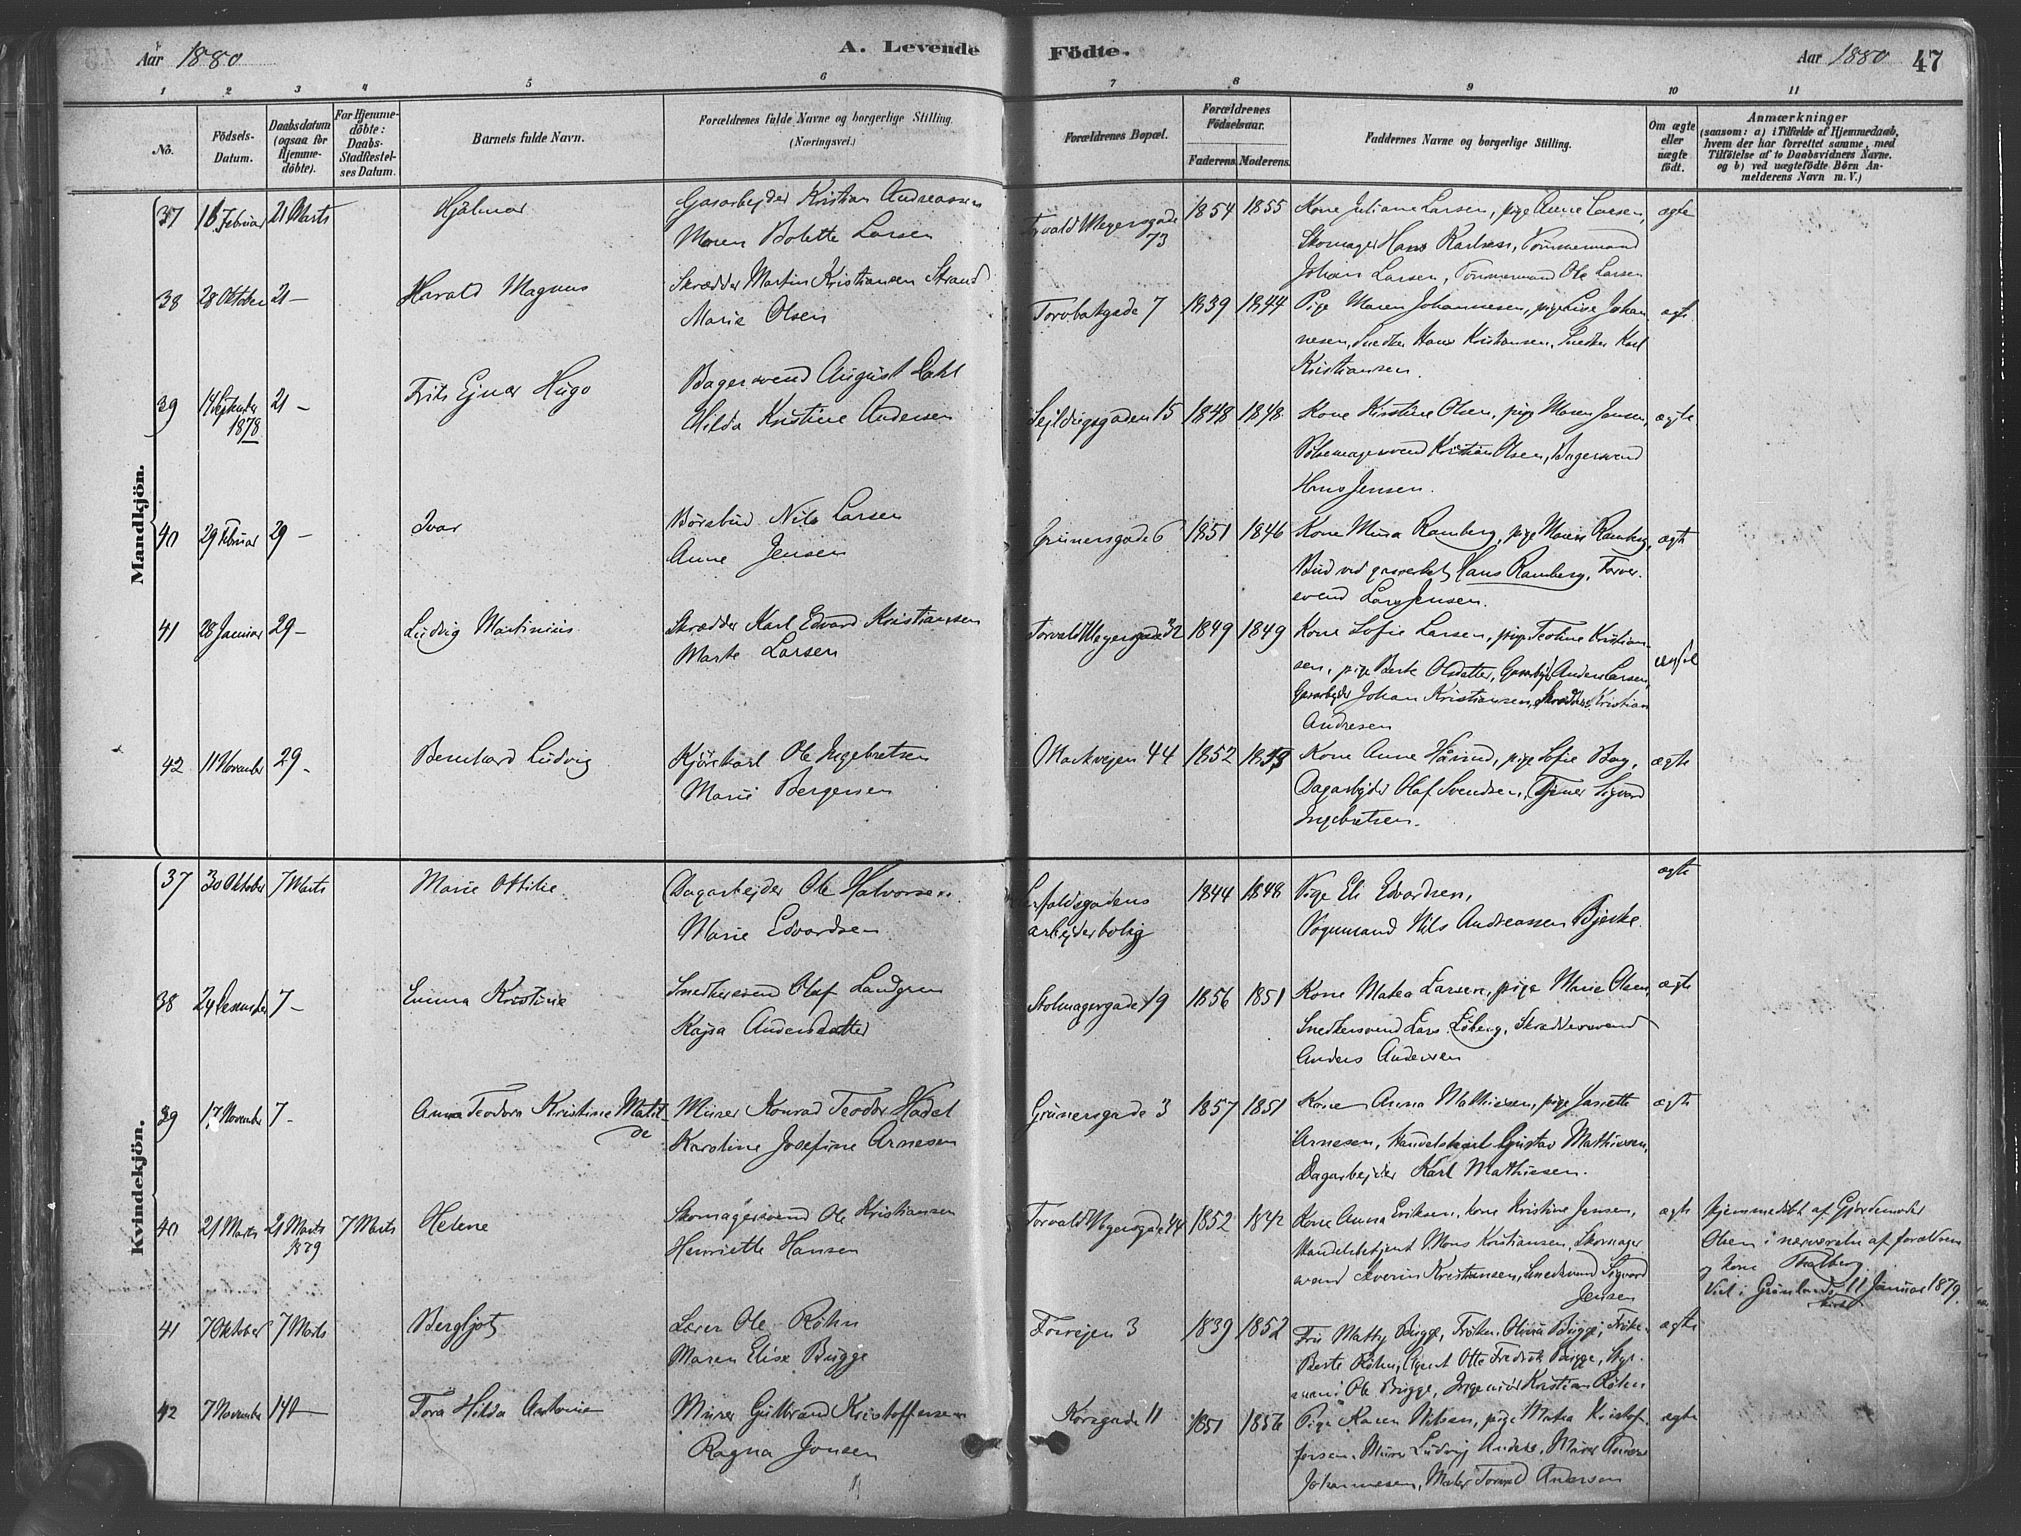 Aar 1880 A. Levende Födte. Aar 1880 47
1 2 3 4 5 6 7 8 9 10 11
No. Födsels-Datum. Daabsdatum (ogsaa for Hjemmedöbte). For Hjemmedöbte: Daabs-Stadfestelses Datum. Barnets fulde Navn. Forældrenes fulde Navne og borgerlige Stilling. (Næringsvei.) Forældrenes Bopæl. Forældrenes Födselsaar. Faderens. Moderens. Faddernes Navne og borgerlige Stilling. Om ægte eller uægte födt. Anmærkninger (saasom: a) i Tilfælde af Hjemmedaab, hvem der har forrettet samme, med Tilföielse af to Daabsvidners Navne, og b) ved uægtefödte Börn Anmelderens Navn m. V.)
Mandkjön.
37 16 Februar 21 Marts Hjalmar Gasarbejder Kristian Andreassen
Maren Bolette Larsen
Torvald Meyersgade 73 1854 1855 Kone Juliane Larsen, pige Anne Larsen, ægte
Skomager Hans Karlsen, Tömmermand
Johan Larsen, Tömmermand Ole Larsen
38 28 Oktober 21 - Harald Magnus Skrædder Martin Kristiansen Strand
Marie Olsen
Torvbakgade 7 1839 1844 Pige Maren Johannesen, pige Live Johan- ægte
nesen, Snedker Hans Kristiansen, Snedker Karl
Kristiansen.
39 14 September 1878 21 - Frits Ejnar Hugo Bagersvend August Dahl
Hilda Kristine Andersen
Sejldugsgaden 15 1848 1848 Kone Kirstine Olsen, pige Maren Jensen, ægte
Pölsemagersvend Kristian Olsen, Bagersvend
Hans Jensen.
40 29 Februar 29 - Ivar Börsbud Nils Larsen
Anne Jensen
Grünersgade 6 1851 1846 Kone Mina Ramberg, pige Maren Ramberg, ægte
Bud ved gasverket Hans Ramberg, Farver-
svend Lars Jensen.
41 28 Januar 29 - Ludvig Martinius Skrædder Karl Edvard Kristiansen
Marte Larsen
Torvald Meyersgade 32 1849 1849 Kone Sofie Larsen, pige Teoline Kristian-
sen, pige Berte Olsdatter, Gasarbejder Anders Larsen,
Gasarbejder Johan Kristiansen, Skrædder Kristian
Andresen
42 11 November 29 - Bernhard Ludvig Kjörekarl Ole Ingebretsen
Marie Bergersen
Markvejen 44 1852 1853 Kone Anne , pige Sofie , ægte
Dagarbejder Olaf Svendsen, Tjener Sigvard
Ingebretsen.
Kvindekjön.
37 30 Oktober 7 Marts Marie Ottilie Dagarbejder Ole Halvorsen
Marie Edvardsen
arbejderbolig 1844 1848 Pige Eli Edvardsen, ægte
Vognmand Nils Andreassen Bjerke.
38 24 December 7 - Emma Kristine Snedkersvend Olaf Landgren
Kajsa Andersdatter
Stolmagergade 19 1856 1851 Kone Matea Larsen, pige Marie Olsen, ægte
Snedkersvend Lars Löberg, Skreddersvend
Anders Andersen
39 17 November 7 - Anna Teodora Kristine Matil-
de
Murer Konrad Teodor Hadel
Karoline Josefine Arnesen
Grünersgade 3 1857 1851 Kone Anna Mathiesen, pige Janette ægte
Arnesen, Handelskarl Gustav Mathiesen,
Dagarbejder Karl Mathiesen.
40 21 Marts 21 Marts 1879 7 Marts Helene Skomagersvend Ole Kristiansen
Henriette Hansen
Torvald Meyersgade 44 1852 1842 Kone Anna Eriksen, kone Kristine Jensen, ægte
Handelsbetjent Mons Kristiansen, Skomager-
svend Severin Kristiansen, Snedksvend Sigvard
Jensen
Hjemmedöbt af Gjordemoder
Olsen i nærværelse af forældrene
og kone Thalberg
Viet i Grönlands kirke 11 Januar 1879.
41 7 Oktober 7 Marts Bergljot Lærer Ole Röhn
Maren Elise Bugge
Fossvejen 3 1839 1852 Fru Matty Bugge, Fröken Olivia Bugge, Fröken ægte
Berte Röhn, Agent Otto Fredrik Bugge, Styr-
mand Ole Bugge, Ingeniör Kristian Röhn
42 7 November 14 - Tora Hilda Antonie Murer Gulbrand Kristoffersen
Ragna Jonsen
Korsgade 11 1851 1856 Pige Karen Nilsen, pige Matea Kristof- ægte
fersen, Murer Ludvig Anders, Murer
Johannesen, Maler Tormod Andersen